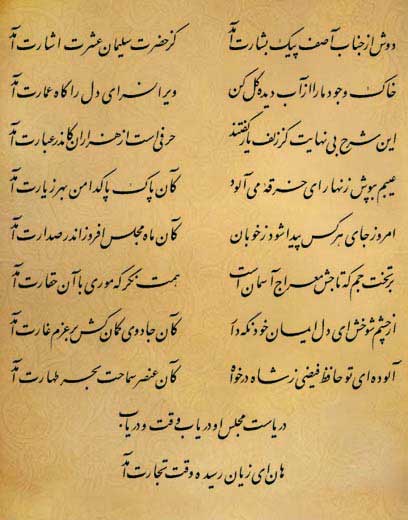 دوش از جناب آصف پیک بشارت آمد کز حضرت سلیمان عشرت اشارت آمد
خاک وجود ما را از آب دیده گل کن ویرانسرای دل را گاه عمارت آمد
این شرح بی نهایت کز زلف یار گفتند حرفی است از هزاران کاندر عبارت آمد
عیبم بپوش زنهار ای خرقه می آلود کان پاک پاکدامن بهر زیارت آمد
امروز جای هر کس پیدا شود ز خوبان کان ماه مجلس افروز اندر صدارت آمد
بر تخت جم که تاجش معراج آسمان است همت نگر که موری با آن حقارت آمد
از چشم شوخش ای دل ایمان خود نگه دار کان جادوی کمان کش بر عزم غارت آمد
آلوده ای تو حافظ فیضی ز شاه درخواه کان عنصر سماحت بهر طهارت آمد
دریاست مجلس او دریاب وقت و دریاب
هان ای زیان رسیده وقت تجارت آمد